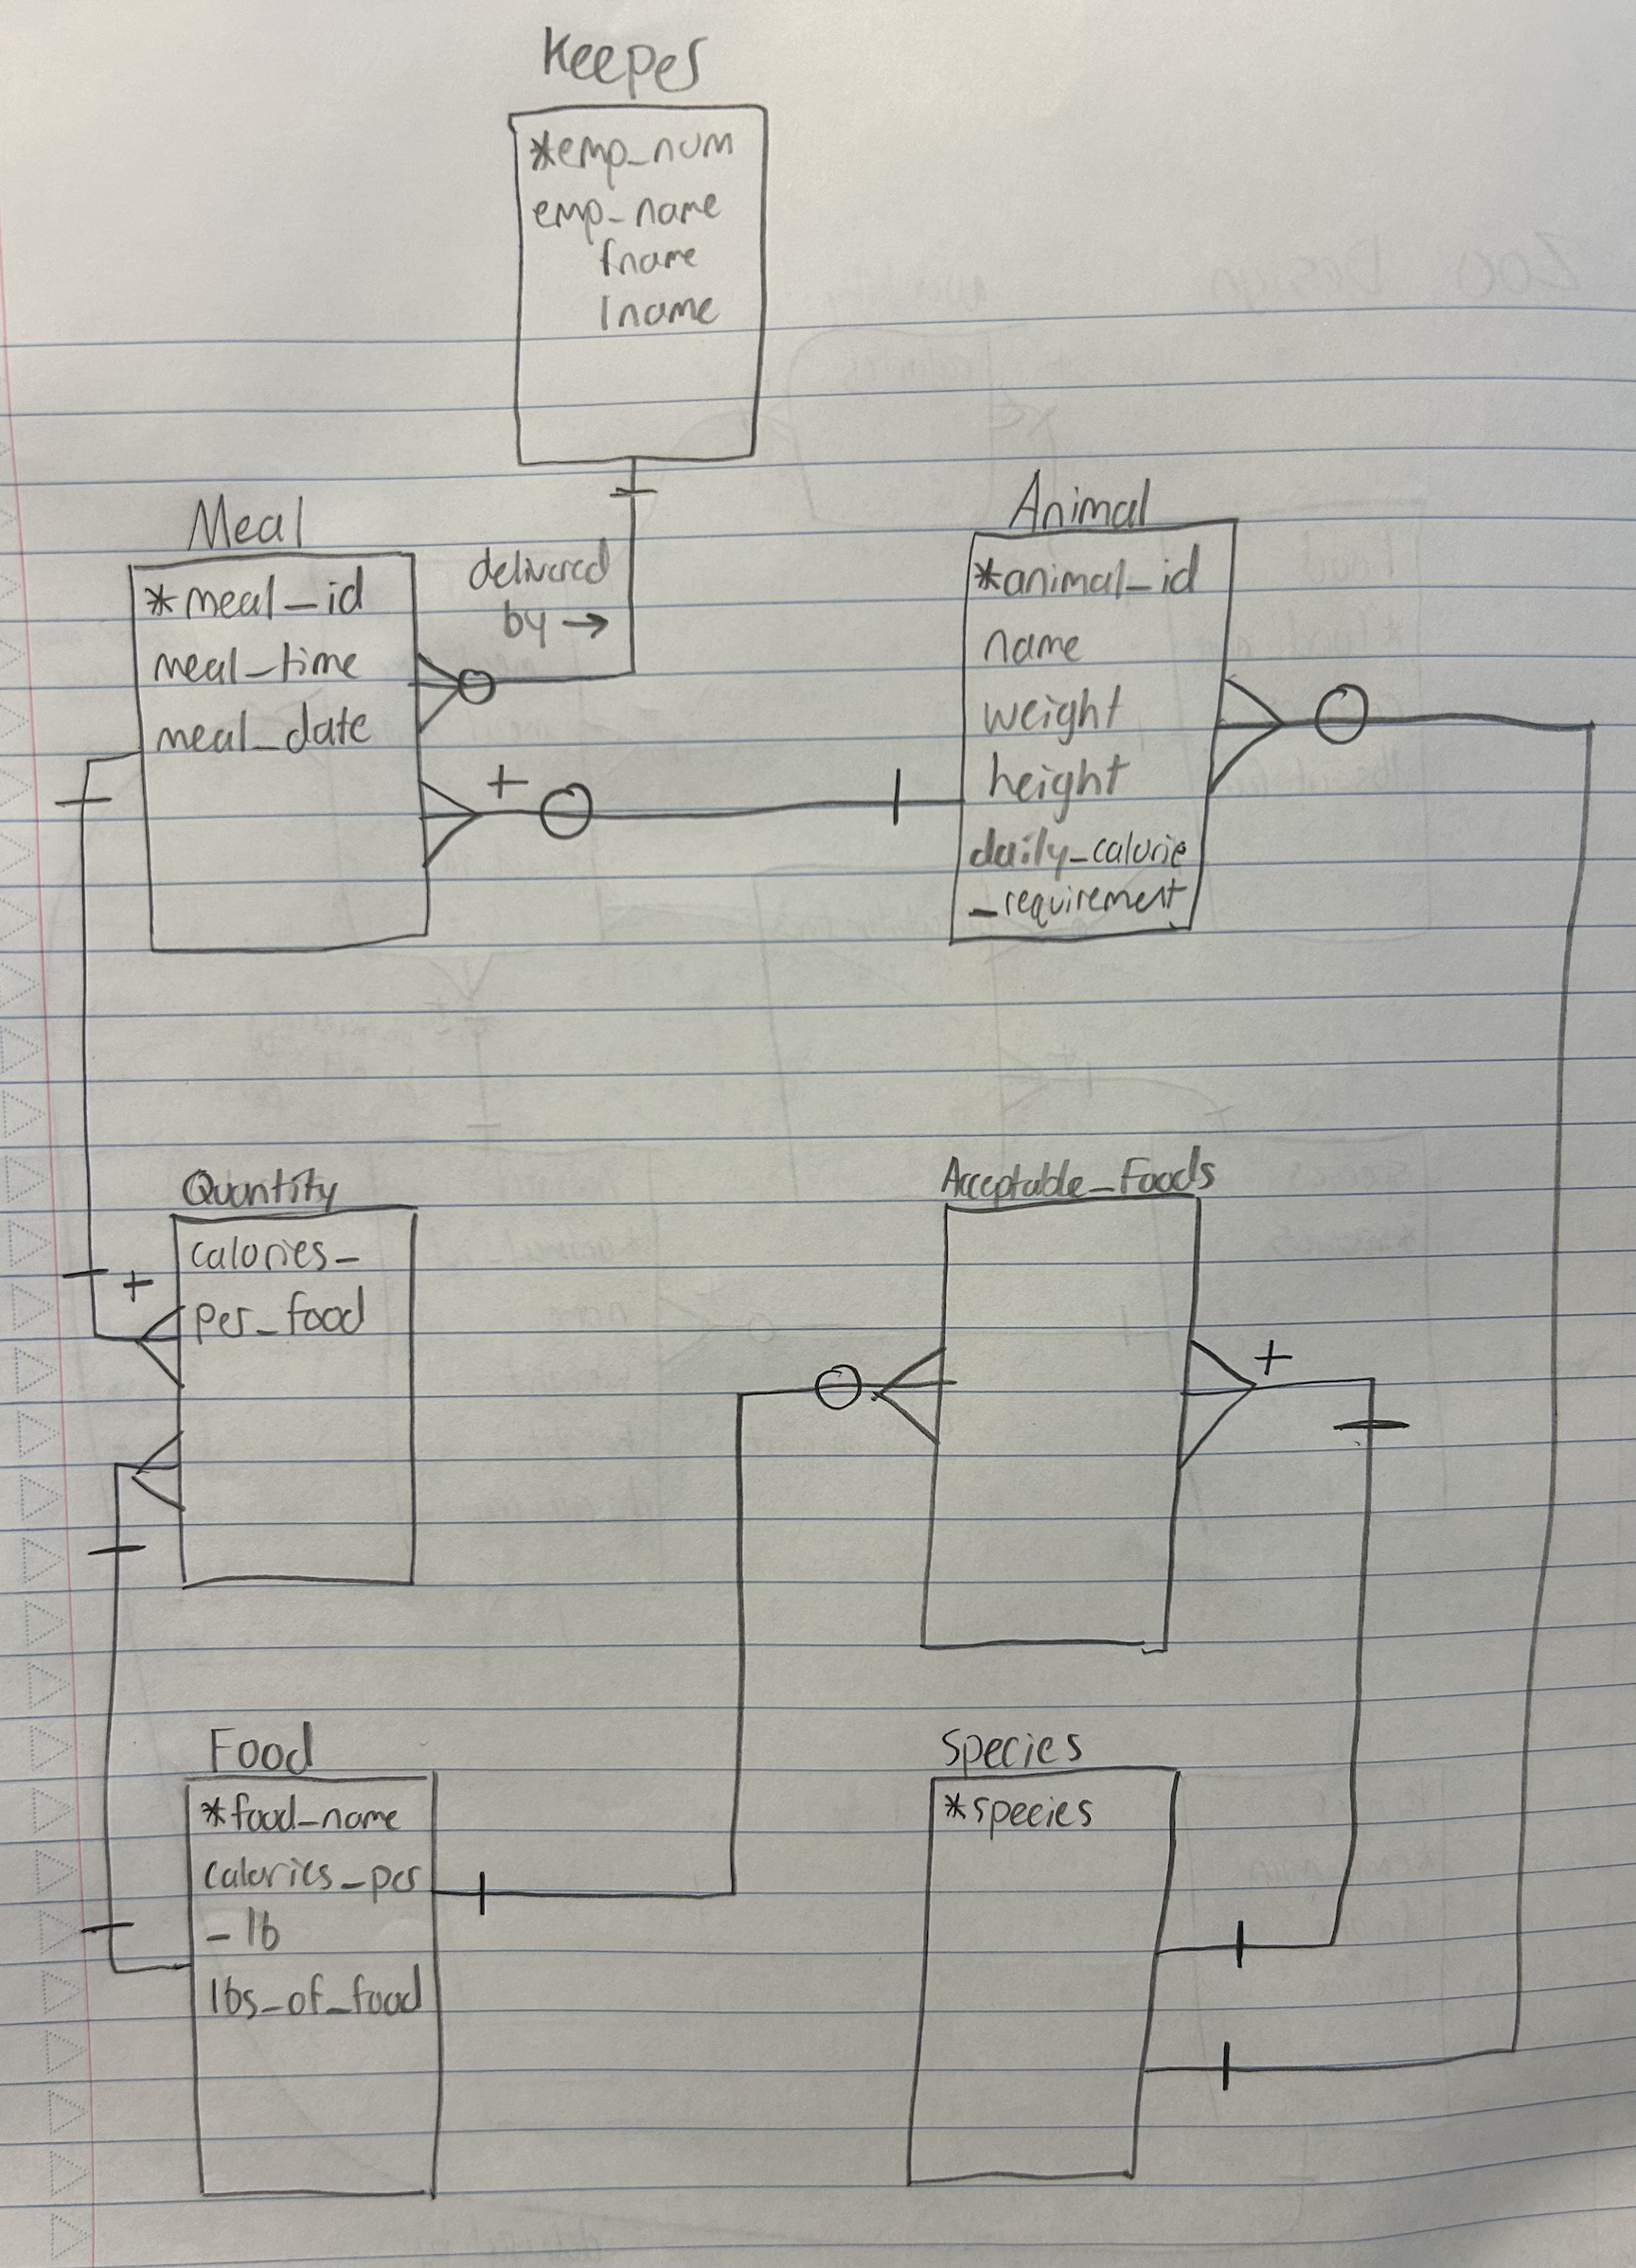 Keeper
*emp_num
emp_name
fname
lname
Meal
*meal_id
meal_time
meal_date
delivered
by →
+
Animal
*animal_id
name
weight
height
daily_calorie
_requirement
Quantity
calories_
per_food
+
Acceptable_Foods
+
Food
*food_name
calories_per
_lb
lbs_of_food
Species
*species